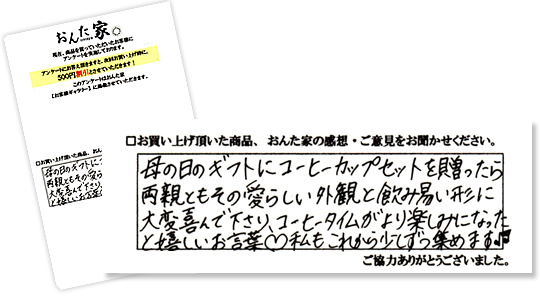 おんた家
現在、商品を買っていただいたお客様に
アンケートを実施しております。
アンケートにお答え頂きますと、次回お買い上げ時に、
500円割引とさせていただきます！
このアンケートはおんた家
【お客様ギャラリー】に掲載させていただきます。
□お買い上げ頂いた商品、おん
母の日のギフトに
両親ともその愛ら
大変喜んで下さ
と嬉しいお言葉
□お買い上げ頂いた商品、おんた家の感想・ご意見をお聞かせください。
母の日のギフトにコーヒーカップセットを贈ったら
両親ともその愛らしい外観と飲み易い形に
大変喜んで下さり、コーヒータイムがより楽しみになった
と嬉しいお言葉♡私もこれから少しずつ集めます♪
ご協力ありがとうございました。